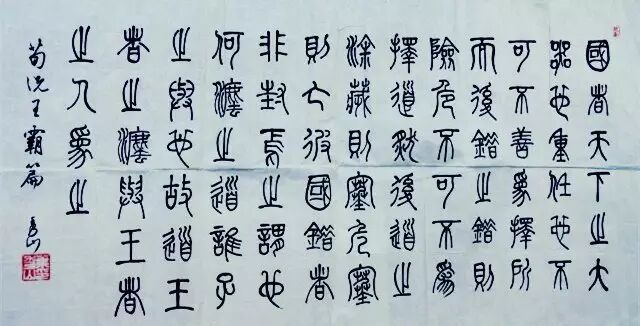 國者天下之大
器也重任也不
可不善為擇所
而後錯之錯則
險危不可不為
擇道然後道之
涂薉則塞危塞
則亡彼國錯者
非封焉之謂也
何灋之道誰子
之與也故道王
者之灋與王者
之人為之
荀況王霸篇